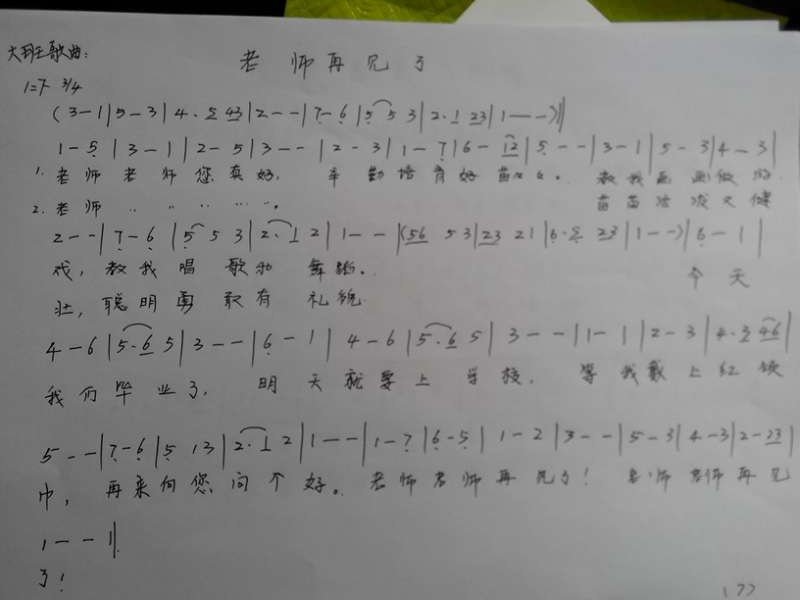 大班歌曲:
老师再见了
1=F 3/4
(3-1|5-3|4·3 43|2--|7-6|5 5 3|2·1 23|1--)||
1-5|3-1|2-5|3--|2-3|1-7|6-12|5--|3-1|5-3|4-3|
1. 老师老师您真好, 辛勤培育好苗苗。 教我画画做游
2. 老师 〃 〃 〃 〃 〃 。 苗苗活泼又健
2--|7-6|5 5 3|2·1 2|1--|(56 5 3|23 21|6·5 23|1--)|6-1|
戏, 教我唱歌和舞蹈。 今天
壮, 聪明勇敢有礼貌
4-6|5·6 5|3--|6-1|4-6|5·6 5|3--|1-1|2-3|4·3 46|
我们毕业了, 明天就要上学校, 等我戴上红领
5--|7-6|5 1 3|2·1 2|1--|1-7|6-5|1-2|3--|5-3|4-3|2-23|
巾, 再来向您问个好。 老师老师再见了! 老师老师再见
1--1||
了!
(7)